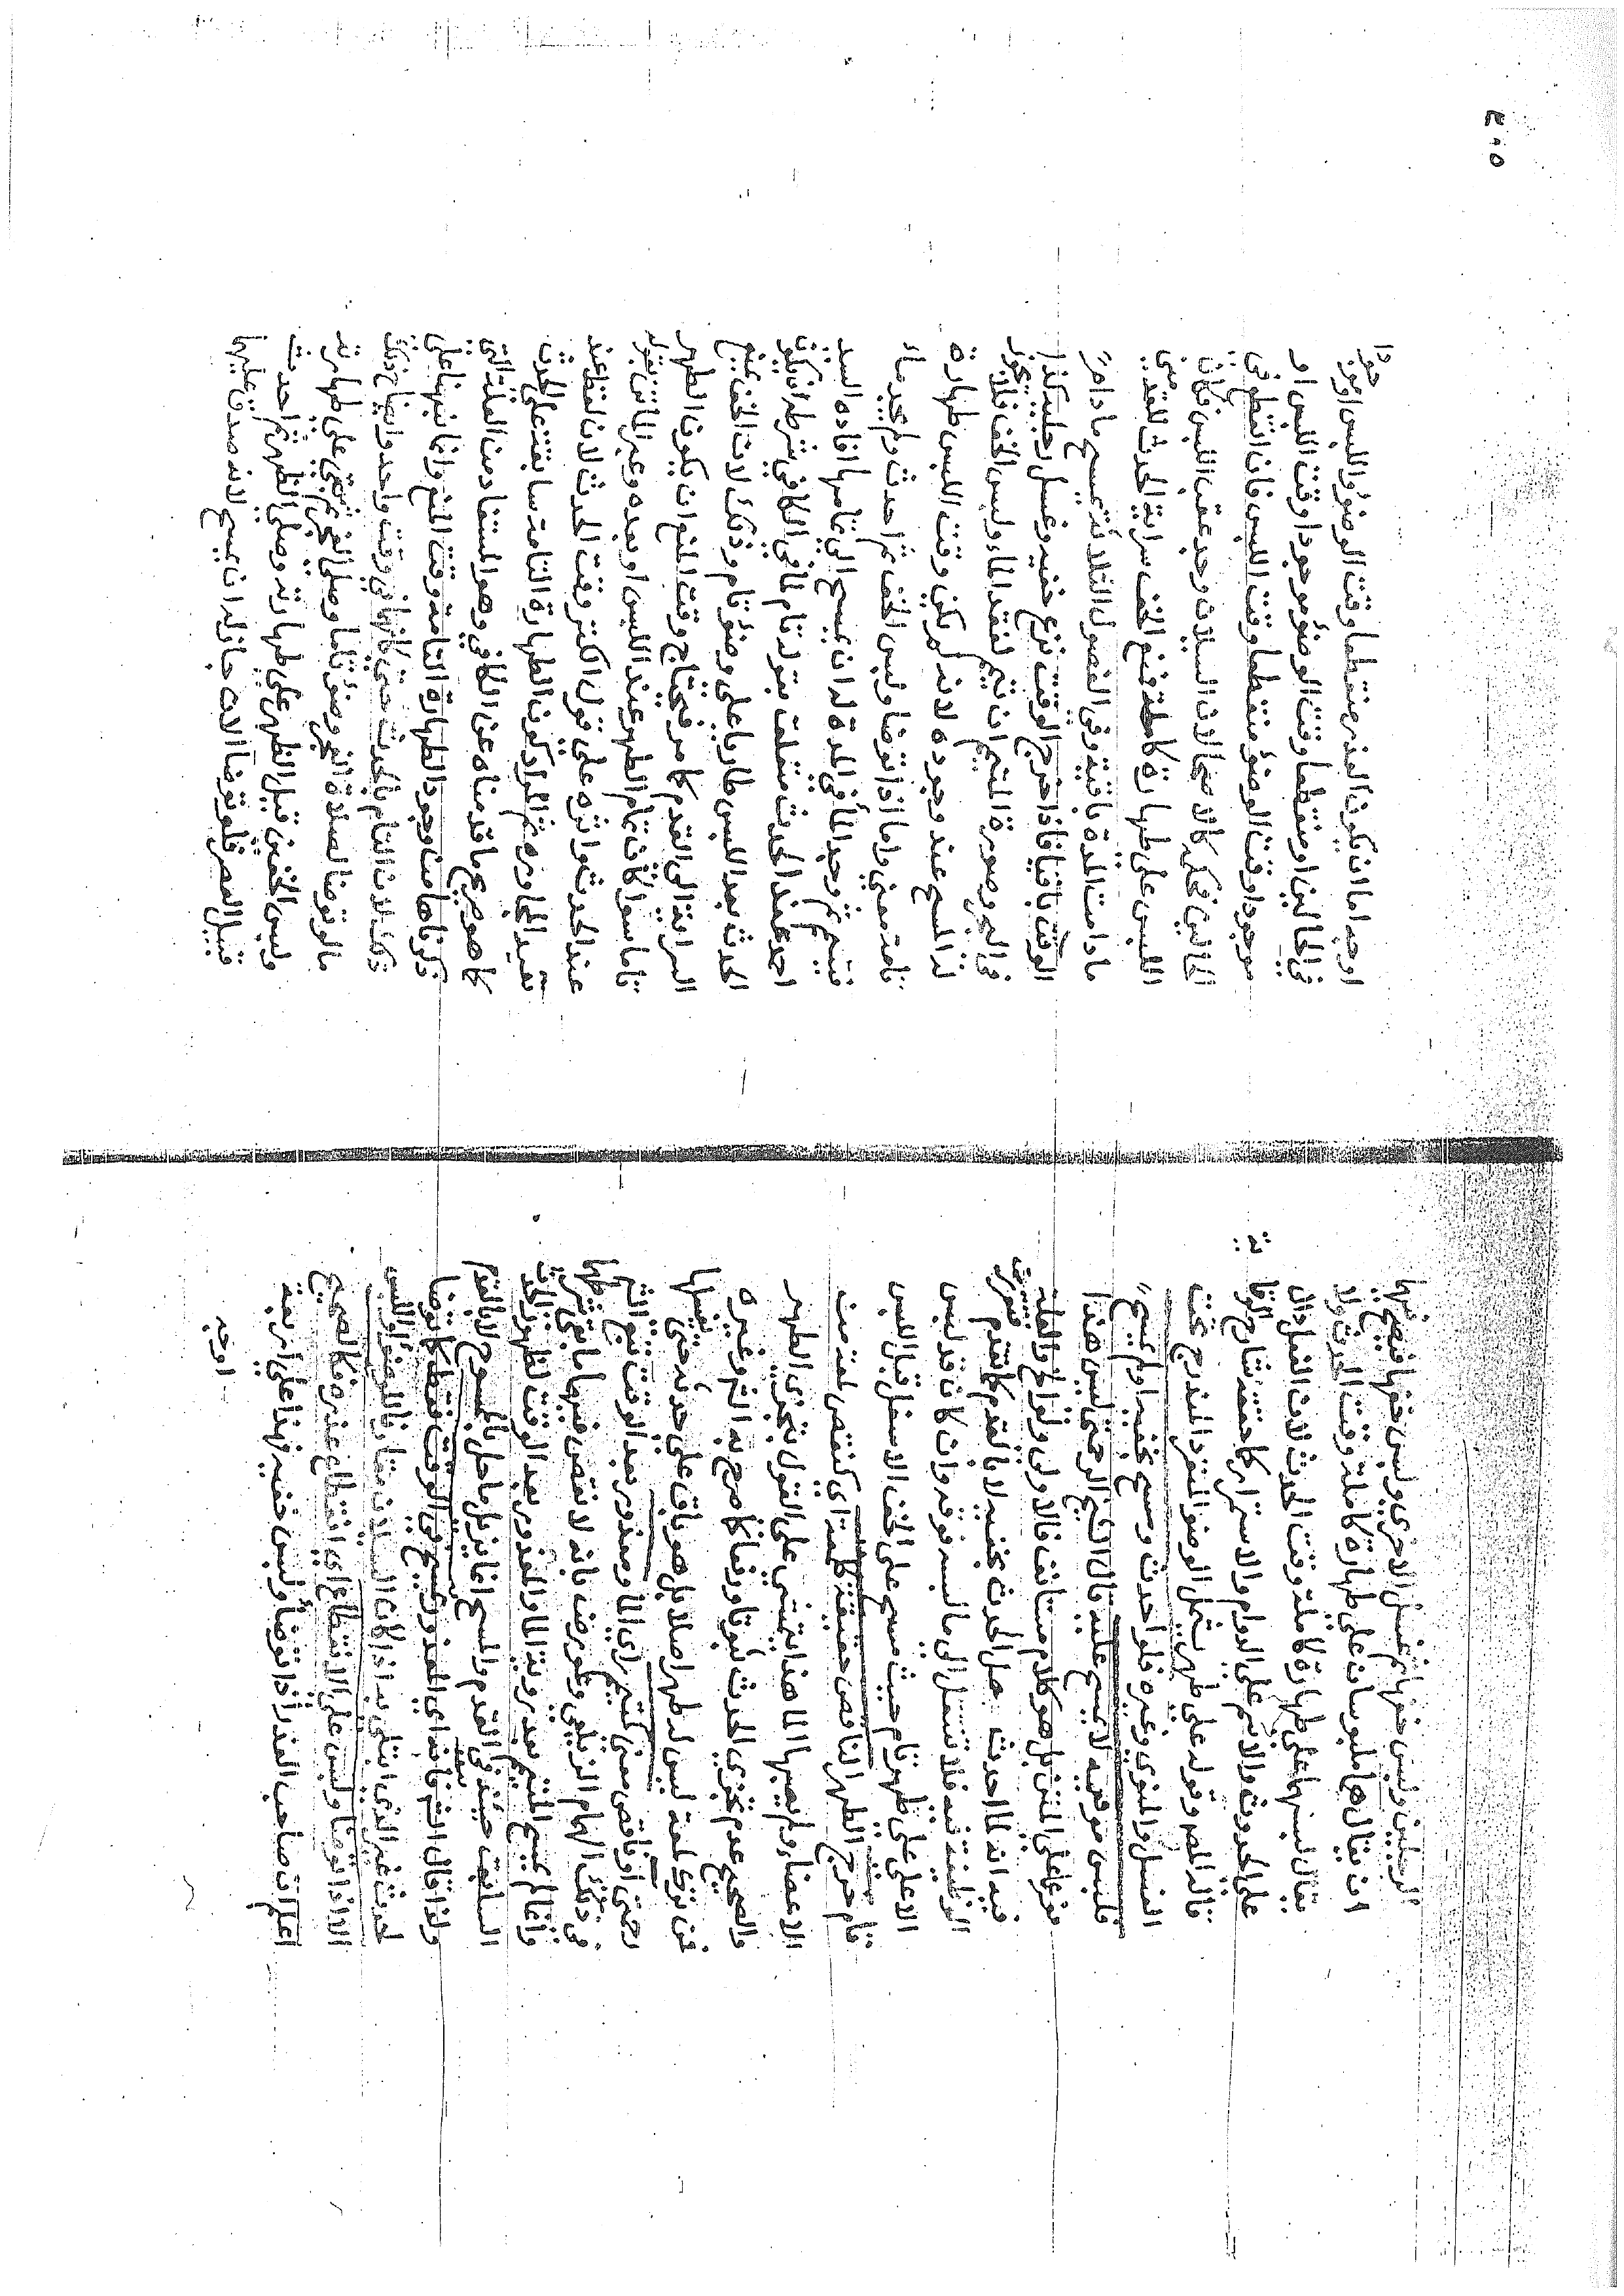 الرجلين ولبس خفها ثم غسل الاخرى ولبس خفها فيصح فيها
ان يقال هما ملبوسان على طهارة كاملة وقت الحدث ولا
يقال لبسهما على طهارة كاملة وقت الحدث لان الفعل دال
على الحدوث والاسم على الدوام والاستمرار كما حققه شارح الوقا
قال المص وقوله على طهر يشمل الوضو المنفرد المندرج تحت
الغسل والمنوي وغيره فلو احدث ومسح بخفيه او لم يمسح
فلبس موقيه لا يمسح عليه قال الشيخ الرحمتى ليس هذا
مفرعا على المتن بل هو كلام مستانف فالاولى ولو الخ والعلة
فيه انه لما احدث حل الحدث بخفيه لا بالقدم كما تقدم فتقررت
الوظيفة فيه فلا تنتقل الى ما لبسه فوقه وان كان قد لبس
الاعلى على طهر تام حيث مسح على الخف الاسفل قبل اللبس
تام خرج الطهر الناقص حقيقة كلمعة اى كنقص لمعة من
الاعضاء ولم يصبها الماء هذا يتمشى على القول بتجزى الطهر
والصحيح عدم تجزى الحدث ثبوتا ورفعا كما صرح به الشم وغيره
فمن ترك لمعة ليس له طهر اصلا بل هو باق على حدثه حتى يغسلها
رحمتى او ناقص معنى كتيمم راى الماء ومعذور بعد الوقت تبع الشم
فى ذلك الهمام الزيلعى وعورض بانه لا نقص فيهما ما بقى شرطهما
وانما لم يمسح المتيمم بعد روية الماء والمعذور بعد الوقت لظهور الحدث
السابق حينئذ فى القدم والمسح انما يزيل ما حل بالممسوح لا بالقدم
ولذا قال الشم فانه اى المعذور يمسح فى الوقت فقط كلما توضا
لحدث غير الذى ابتلى به اذا كان السيلان مقارنا للوضوء او اللبس
الا اذا توضا ولبس على الانقطاع اى انقطاع عذره فكالصحيح
اعلم ان صاحب العذر اذا توضا ولبس خفيه فهذا على اربعة
اوجه
اوجه اما ان يكون العذر منقطعا وقت الوضوء واللبس او موجودا
فى الحالين او منقطعا وقت الوضوء موجودا وقت اللبس او
موجودا وقت الوضوء منقطعا وقت اللبس فان انقطع فى
الحالين فحكمه كالاصحاء لان السيلان وجد عقب اللبس فكان
اللبس على طهارة كاملة فمنع الخف سراية الحدث للقدمين
ما دامت المدة باقية وفى الفصول الثلاثة يمسح ما دام
الوقت باقيا فاذا خرج الوقت نزع خفيه وغسل رجليه كذا
فى البحر وصورة المتيمم ان تيمم لفقد الماء ولبس الخف فلا يجوز
له المسح عند وجوده لانه لم يكن وقت اللبس طهارة
تامة معنى واما اذا توضا ولبس الخف ثم احدث ولم يجد ماء
فتيمم ثم وجد الماء فى المدة له ان يمسح الى تمامها افاده السيد
احمد عند الحدث متعلق بقوله تام لما فى الكافى شرط ان يكون
الحدث بعد اللبس طاريا على وضوء تام وذلك لان الخف يمنع
السراية الى القدم كما مر فيحتاج وقت المنع ان يكون الطهر
تاما سواء كان تمام الطهر عند اللبس او بعده وعبر الماتن بقوله
عند الحدث تبعا لغيره على قول الكنز وقت الحدث لان لفظ عند
تفيد المجاورة ثم المراد كون الطهارة التامة سابقة على الحدث
كما هو صريح ما قدمناه عن الكافى وهو المستفاد من العلة التى
ذكرناها من وجود الطهارة التامة وقت المنع وانما نبهنا على
ذلك لان التام بالحدث حتى كانهما فى وقت واحد وايضاح ذلك
ما لو توضا لصلاة الفجر وضوءا تاما وصلى الفجر ثم بقى على طهارته
ولبس الخفين قبيل الظهر على طهارته وصلى الظهر ثم احدث
قبيل العصر فلو توضا الان جاز له ان يمسح لانه صدق عليهما